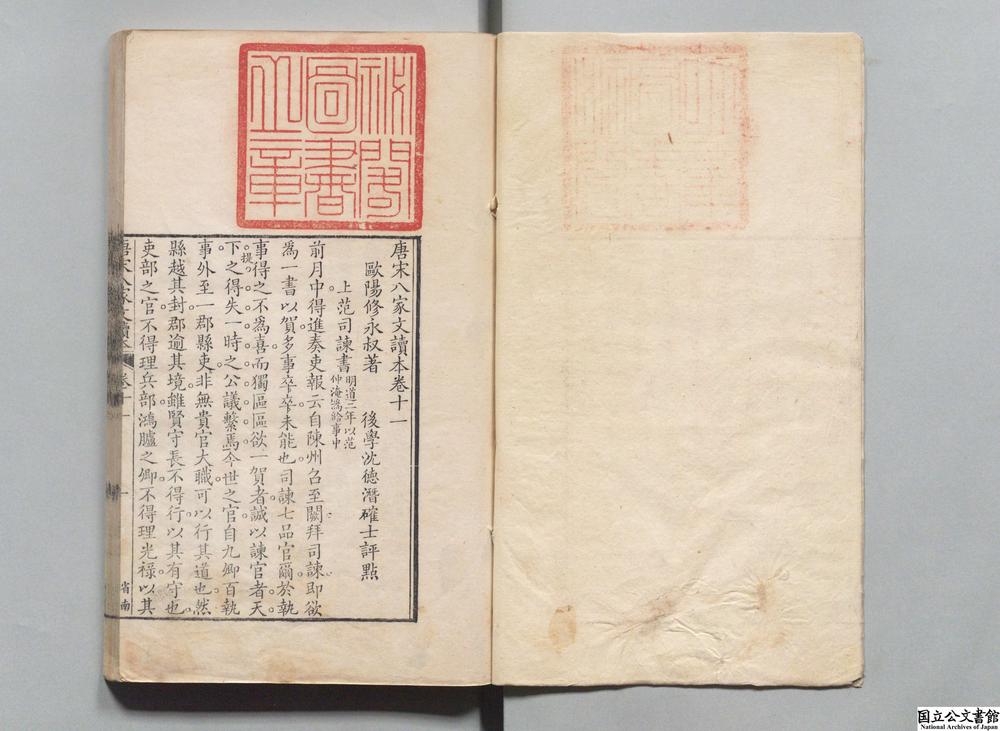 秘閣圖書之章
唐宋八家文讀本卷十一
歐陽修永叔著　後學沈德潛確士評點
上范司諫書明道二年以范仲淹爲給事中
前月中得進奏吏報云自陳州召至闕拜司諫即欲
爲一書以賀多事卒卒未能也司諫七品官爾於執
事得之不爲喜而獨區區欲一賀者誠以諫官者天
提
下之得失一時之公議繫焉今世之官自九卿百執
事外至一郡縣吏非無貴官大職可以行其道也然
縣越其封郡逾其境雖賢守長不得行以其有守也
吏部之官不得理兵部鴻臚之卿不得理光祿以其
唐宋八家文讀本　卷十一　一
省南
国立公文書館
National Archives of Japan